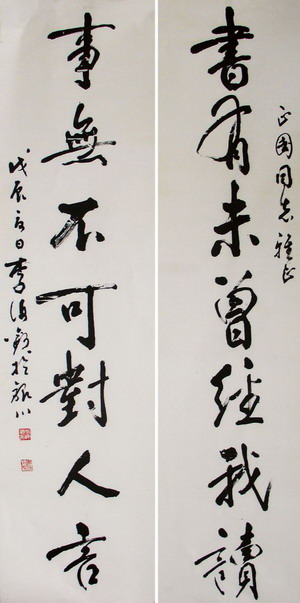 正國同志雅正
書有未曾經我讀
事無不可對人言
戊辰日李海於銀川